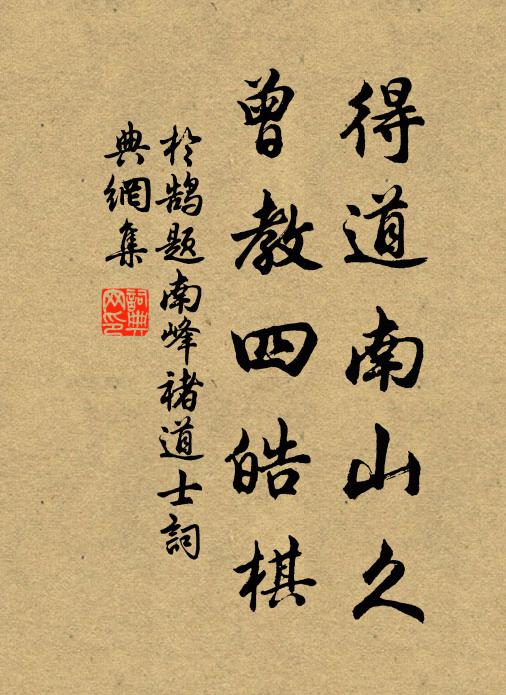 得道南山久
曾教四皓棋
於鵠題南峰褚道士詞
典網集
詞典
网印